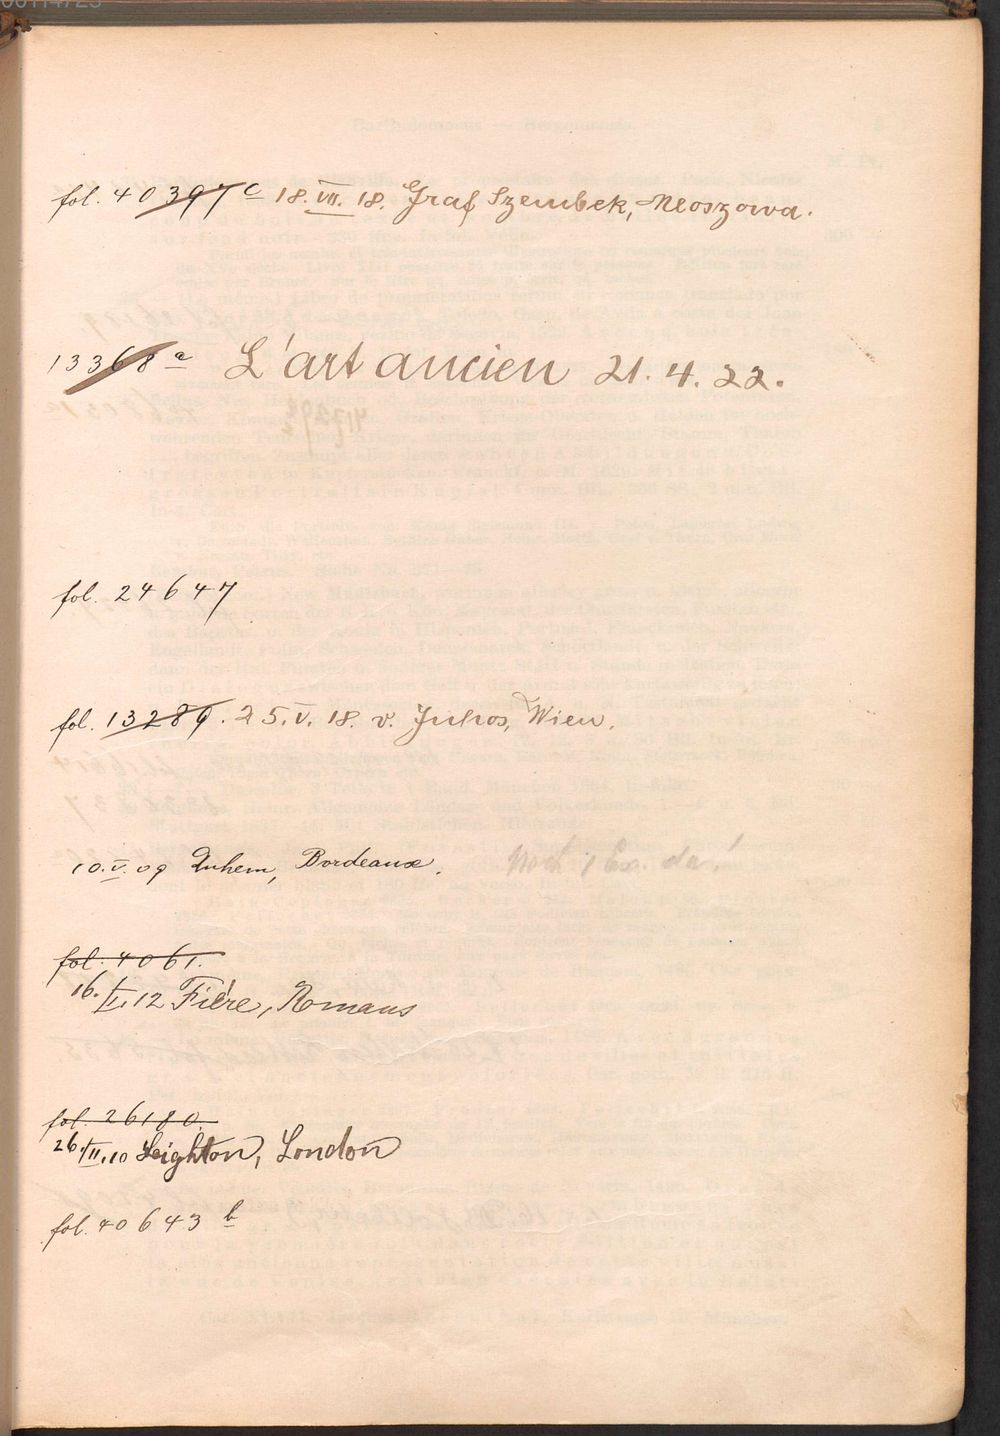 fol. 40397 c 18. VII. 18. Graf Szembek, Mloszowa.
13368 a L'art ancien 21. 4. 22.
fol. 24647
fol. 13289. 25. V. 18. v. Juhos, Wien.
10. V. 09 Duhem, Bordeaux. Noch 1 Ex. da!
fol. 4061.
16. I. 12 Fière, Romans
fol. 26180.
26. II. 10 Leighton, London
fol. 40643 b